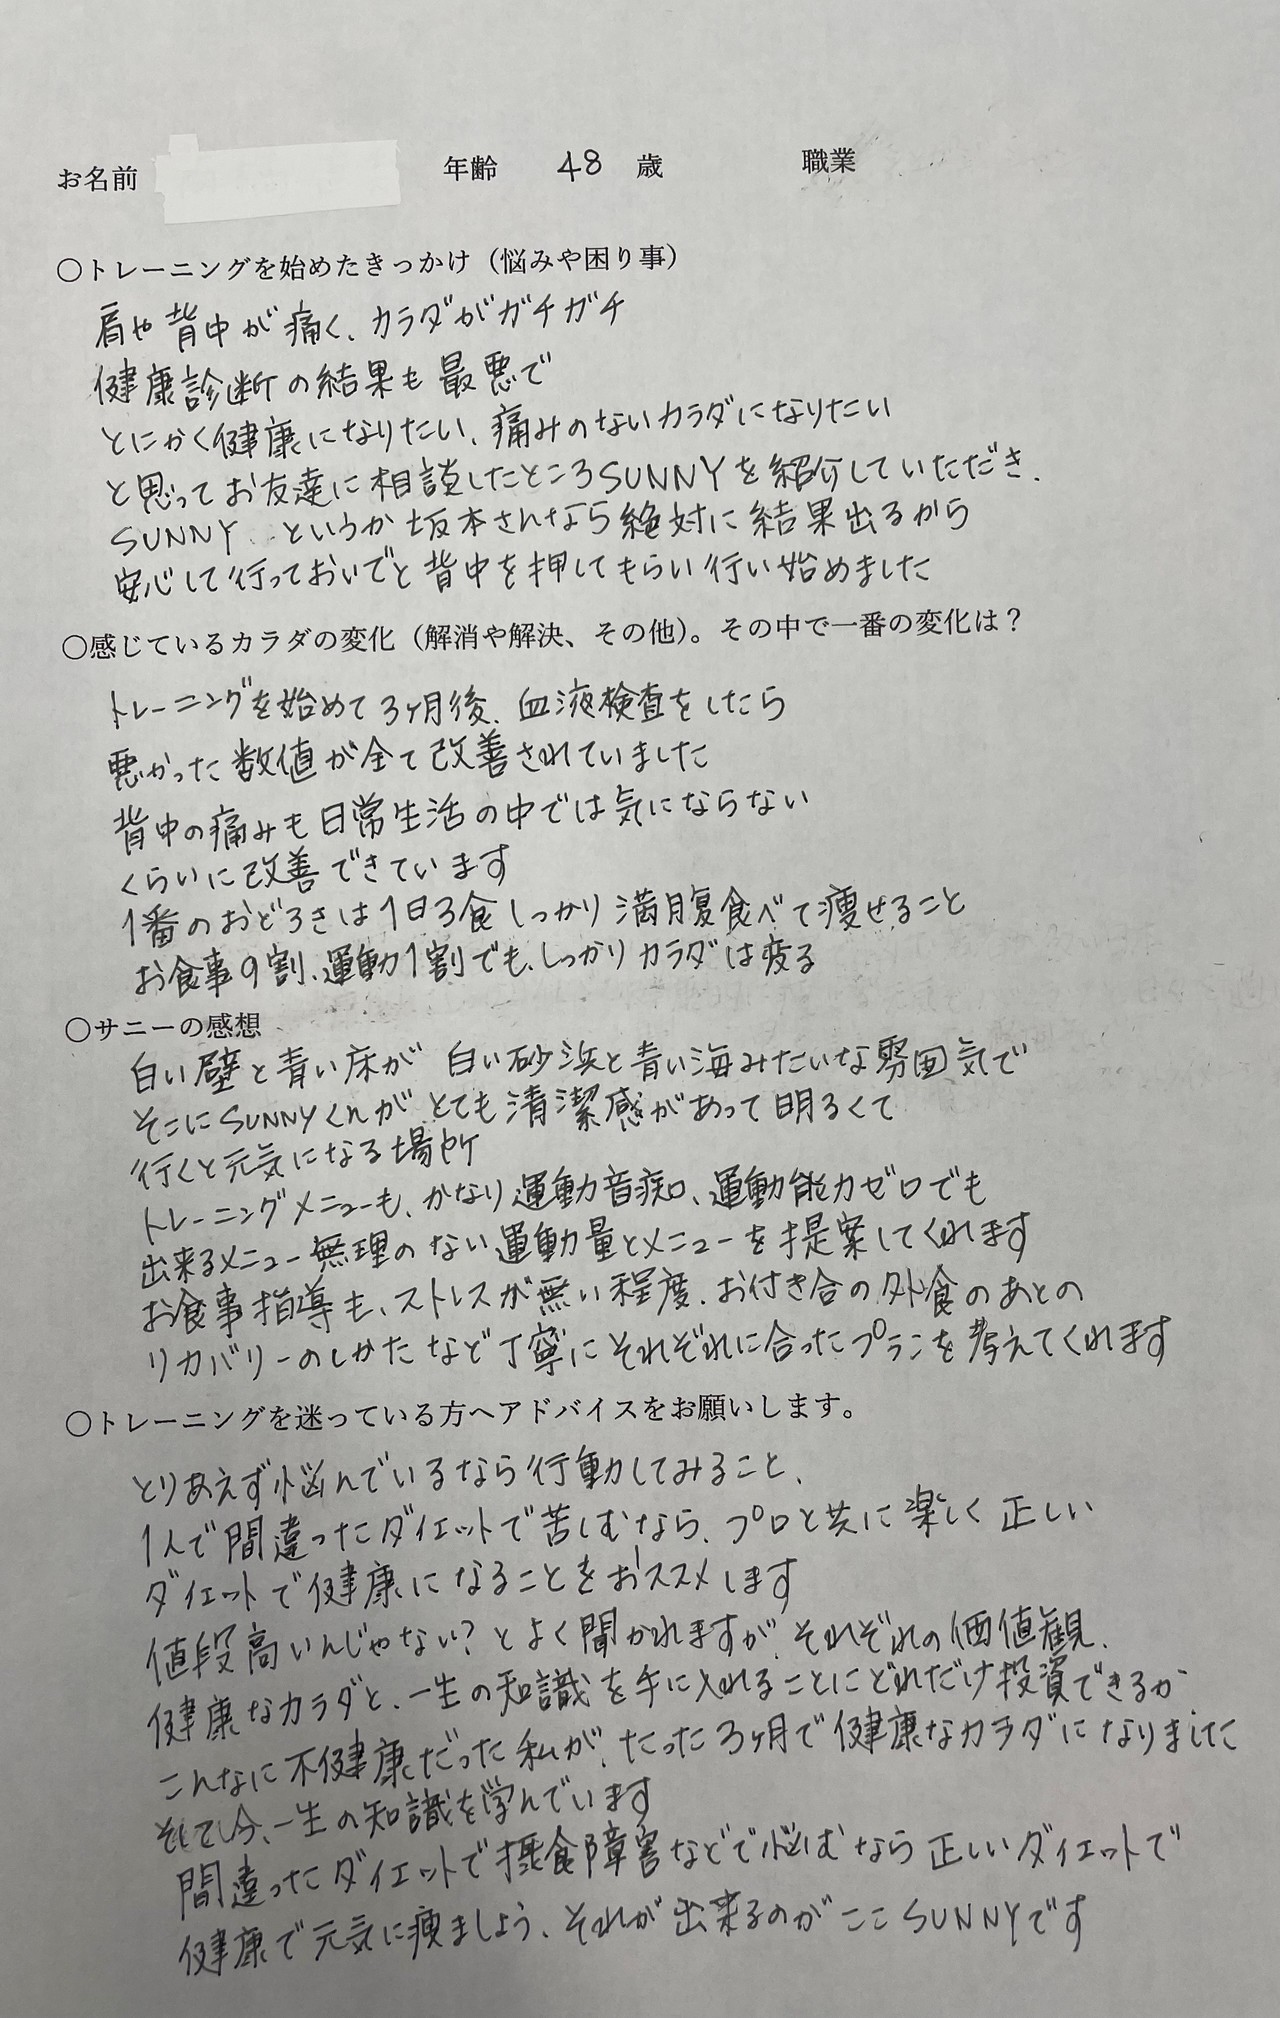 お名前 年齢 48 歳 職業
○トレーニングを始めたきっかけ（悩みや困り事）
肩や背中が痛く、カラダがガチガチ
健康診断の結果も最悪で
とにかく健康になりたい、痛みのないカラダになりたい
と思ってお友達に相談したところSUNNYを紹介していただき、
SUNNY というか坂本さんなら絶対に結果出るから
安心して行っておいでと背中を押してもらい行い始めました
○感じているカラダの変化（解消や解決、その他）。その中で一番の変化は？
トレーニングを始めて3ヶ月後、血液検査をしたら
悪かった数値が全て改善されていました
背中の痛みも日常生活の中では気にならない
くらいに改善できています
1番のおどろきは1日3食しっかり満腹食べて痩せること
お食事9割、運動1割でも、しっかりカラダは痩る
○サニーの感想
白い壁と青い床が 白い砂浜と青い海みたいな雰囲気で
そこにSUNNYくんがとても清潔感があって明るくて
行くと元気になる場所
トレーニングメニューも、かなり運動音痴、運動能力ゼロでも
出来るメニュー無理のない運動量とメニューを提案してくれます
お食事指導も、ストレスが無い程度、お付き合の外食のあとの
リカバリーのしかたなど丁寧にそれぞれに合ったプランを考えてくれます
○トレーニングを迷っている方へアドバイスをお願いします。
とりあえず悩んでいるなら行動してみること、
1人で間違ったダイエットで苦しむなら、プロと共に楽しく正しい
ダイエットで健康になることをおススメします
値段高いんじゃない？とよく聞かれますが、それぞれの価値観、
健康なカラダと、一生の知識を手に入れることにどれだけ投資できるか
こんなに不健康だった私が、たった3ヶ月で健康なカラダになりました
そして今、一生の知識を学んでいます
間違ったダイエットで摂食障害などで悩むなら正しいダイエットで
健康で元気に痩ましょう、それが出来るのがここSUNNYです